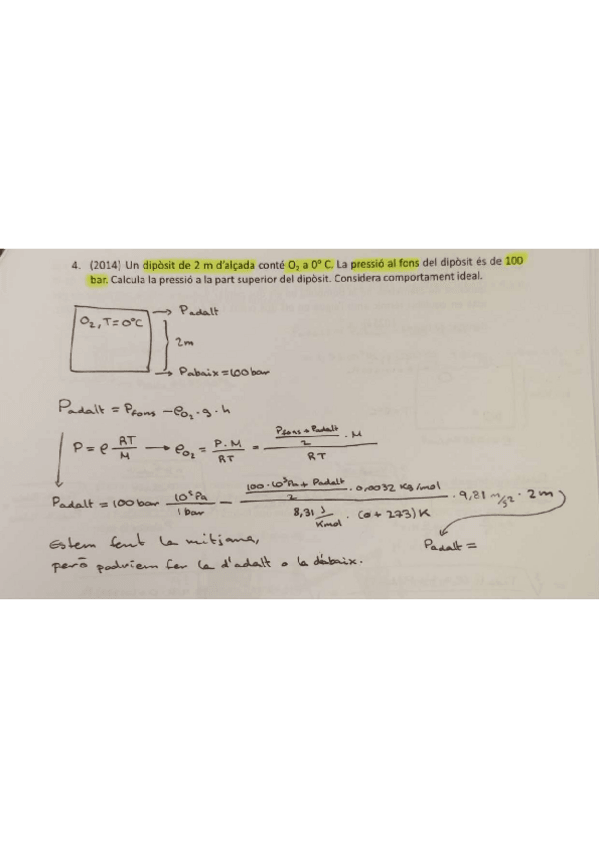 4. (2014) Un dipòsit de 2 m d'alçada conté O₂ a 0º C. La pressió al fons del dipòsit és de 100
bar. Calcula la pressió a la part superior del dipòsit. Considera comportament ideal.
O₂, T=0ºC
Padalt
2m
Pabaix = 100 bar
Padalt = Pfons - ρO₂ · g · h
P = ρ RT/M → ρO₂ = P·M/RT = ((Pfons + Padalt)/2 · M)/RT
Padalt = 100 bar 10⁵Pa/1bar - ((100·10⁵Pa + Padalt)/2 · 0,0032 Kg/mol)/(8,31 J/Kmol · (0+273)K) · 9,81 m/s² · 2m
Padalt =
Estem fent la mitjana,
però podriem fer la d'adalt o la d'abaix.